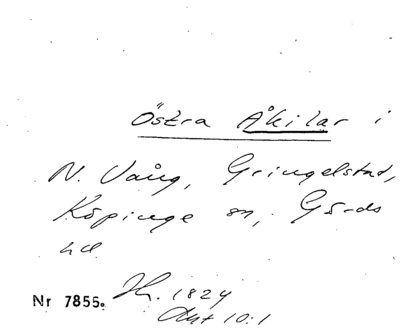 Östra Åkilar i
N. Vång, Gringelstad,
Köpinge sn, Gärds
hd
Nr 7855. H. 1824
Akt 10:1